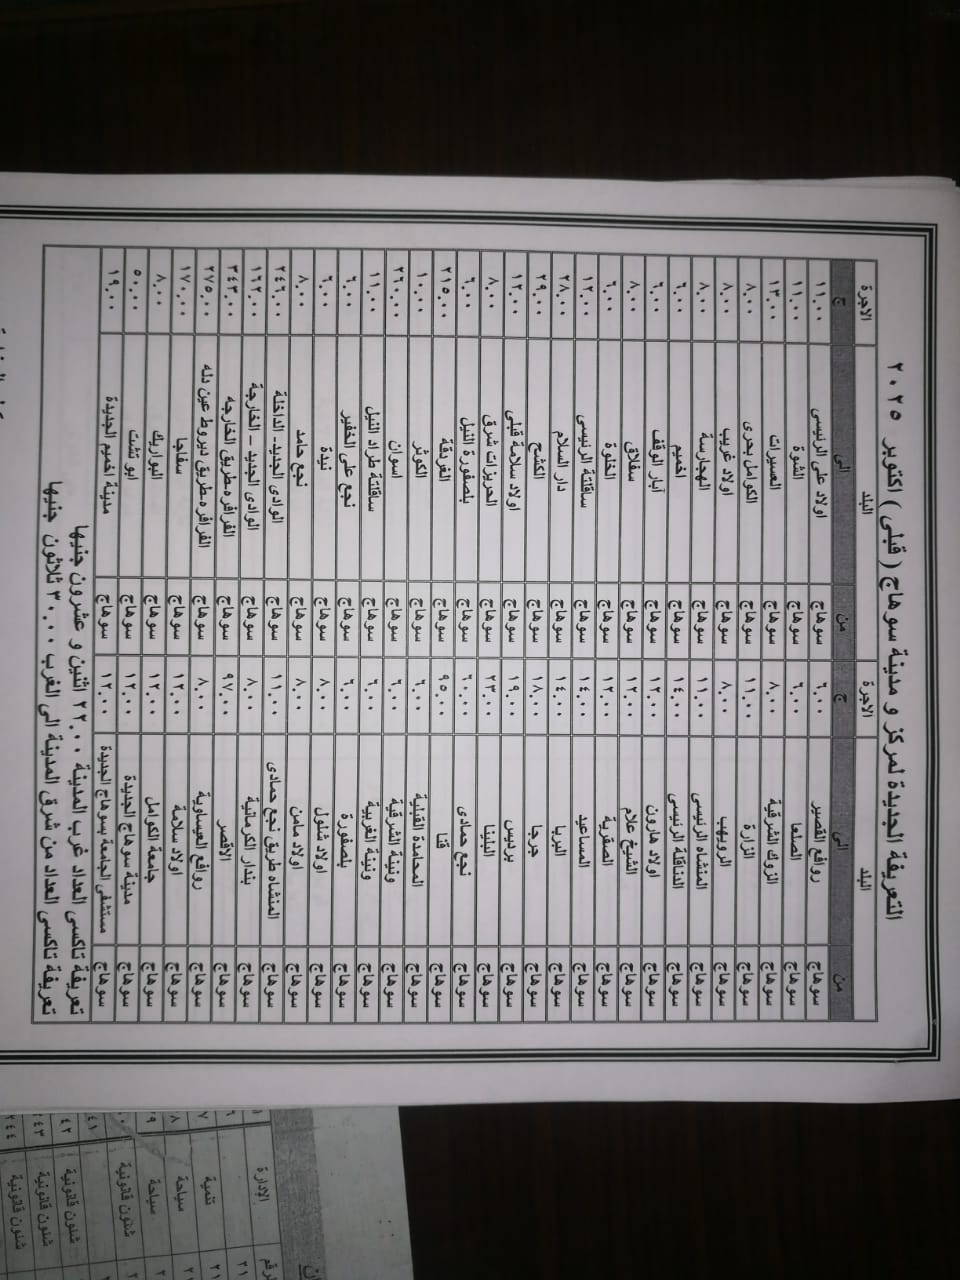 التعريفة الجديدة لمركز و مدينة سوهاج ( قبلى ) اكتوبر ٢٠٢٥
البلد الاجرة البلد الاجرة
من الى ج من الى ج
سوهاج روافع القصير ٦.٠٠ سوهاج اولاد على الرئيسى ١١.٠٠
سوهاج الصلعا ٦.٠٠ سوهاج الشوة ١١.٠٠
سوهاج الزوك الشرقية ٨.٠٠ سوهاج العسيرات ١٣.٠٠
سوهاج الزارة ١١.٠٠ سوهاج الكوامل بحرى ٨.٠٠
سوهاج الرويهب ٨.٠٠ سوهاج اولاد غريب ٨.٠٠
سوهاج المنشاه الرئيسى ١١.٠٠ سوهاج الهجارسة ٨.٠٠
سوهاج الدناقلة الرئيسى ١٤.٠٠ سوهاج اخميم ٦.٠٠
سوهاج اولاد هارون ١٢.٠٠ سوهاج آبار الوقف ٦.٠٠
سوهاج الشيخ علام ١٢.٠٠ سوهاج سفلاق ٨.٠٠
سوهاج الصقرية ١٢.٠٠ سوهاج الخلوة ٦.٠٠
سوهاج المساعيد ١٤.٠٠ سوهاج ساقلتة الرئيسى ١٢.٠٠
سوهاج البربا ١٤.٠٠ سوهاج دار السلام ٢٨.٠٠
سوهاج جرجا ١٨.٠٠ سوهاج الكشح ٢٩.٠٠
سوهاج برديس ١٩.٠٠ سوهاج اولاد سلامة قبلى ١٢.٠٠
سوهاج البلينا ٢٣.٠٠ سوهاج الحريزات شرق ٨.٠٠
سوهاج نجع حمادى ٦٠.٠٠ سوهاج بلصفورة النيل ٦.٠٠
سوهاج قنا ٩٥.٠٠ سوهاج الغردقة ٢١٥.٠٠
سوهاج المحامدة القبلية ٦.٠٠ سوهاج الكوثر ١٠.٠٠
سوهاج ونينة الشرقية ٦.٠٠ سوهاج اسوان ٢٦٠.٠٠
سوهاج ونينة الغربية ٦.٠٠ سوهاج ساقلتة طراد النيل ١١.٠٠
سوهاج بلصفورة ٦.٠٠ سوهاج نجع على الخفير ٦.٠٠
سوهاج اولاد شلول ٨.٠٠ سوهاج نيدة ٦.٠٠
سوهاج اولاد مامن ٨.٠٠ سوهاج نجع حامد ٨.٠٠
سوهاج المنشاه طريق نجع حمادى ١١.٠٠ سوهاج الوادى الجديد- الداخلة ٢٤٦.٠٠
سوهاج بندار الكرمانية ٨.٠٠ سوهاج الوادى الجديد – الخارجة ١٦٢.٠٠
سوهاج الاقصر ٩٧.٠٠ سوهاج الفرافره-طريق الخارجه ٣٤٣.٠٠
سوهاج روافع العيساوية ٨.٠٠ سوهاج الفرافره-طريق ديروط عين دله ٢٧٥.٠٠
سوهاج اولاد سلامة ١٢.٠٠ سوهاج سفاجا ١٧٠.٠٠
سوهاج جامعة الكوامل ١٢.٠٠ سوهاج البواريك ٨.٠٠
سوهاج مدينة سوهاج الجديدة ١٢.٠٠ سوهاج ابو تشت ٥٠.٠٠
سوهاج مستشفى الجامعة بسوهاج الجديدة ١٢.٠٠ سوهاج مدينة اخميم الجديدة ١٩.٠٠
تعريفة تاكسى العداد غرب المدينة ٢٢.٠٠ اثنين و عشرون جنيها
تعريفة تاكسى العداد من شرق المدينة الى الغرب ٣٠.٠٠ ثلاثون جنيها
الادارة
٦
٧ تنمية
٨ سياحة
٩ سياحة
شئون قانونية
٤١
٤٢ شئون قانونية
٤٣ شئون قانونية
٤٤ شئون قانونية